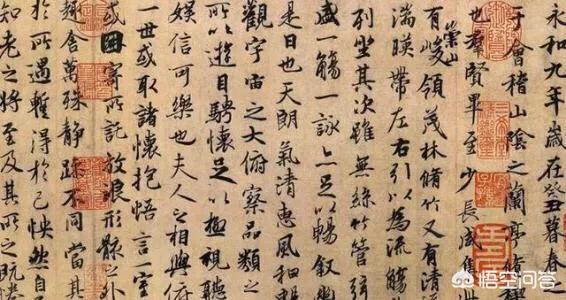 永和九年歲在癸丑暮春之
于會稽山陰之蘭亭脩
也羣賢畢至少長咸集
有崇山峻領茂林脩竹又有清
湍暎帶左右引以為流觴
列坐其次雖無絲竹管弦
盛一觴一詠亦足以暢叙幽
是日也天朗氣清惠風和暢
觀宇宙之大俯察品類之
所以遊目騁懷足以極視聽
娛信可樂也夫人之相與俯
一世或取諸懷抱悟言一室
或因寄所託放浪形骸之外
趣舍萬殊靜躁不同當其
於所遇蹔得於己怏然自
知老之將至及其所之既惓
悟空问答